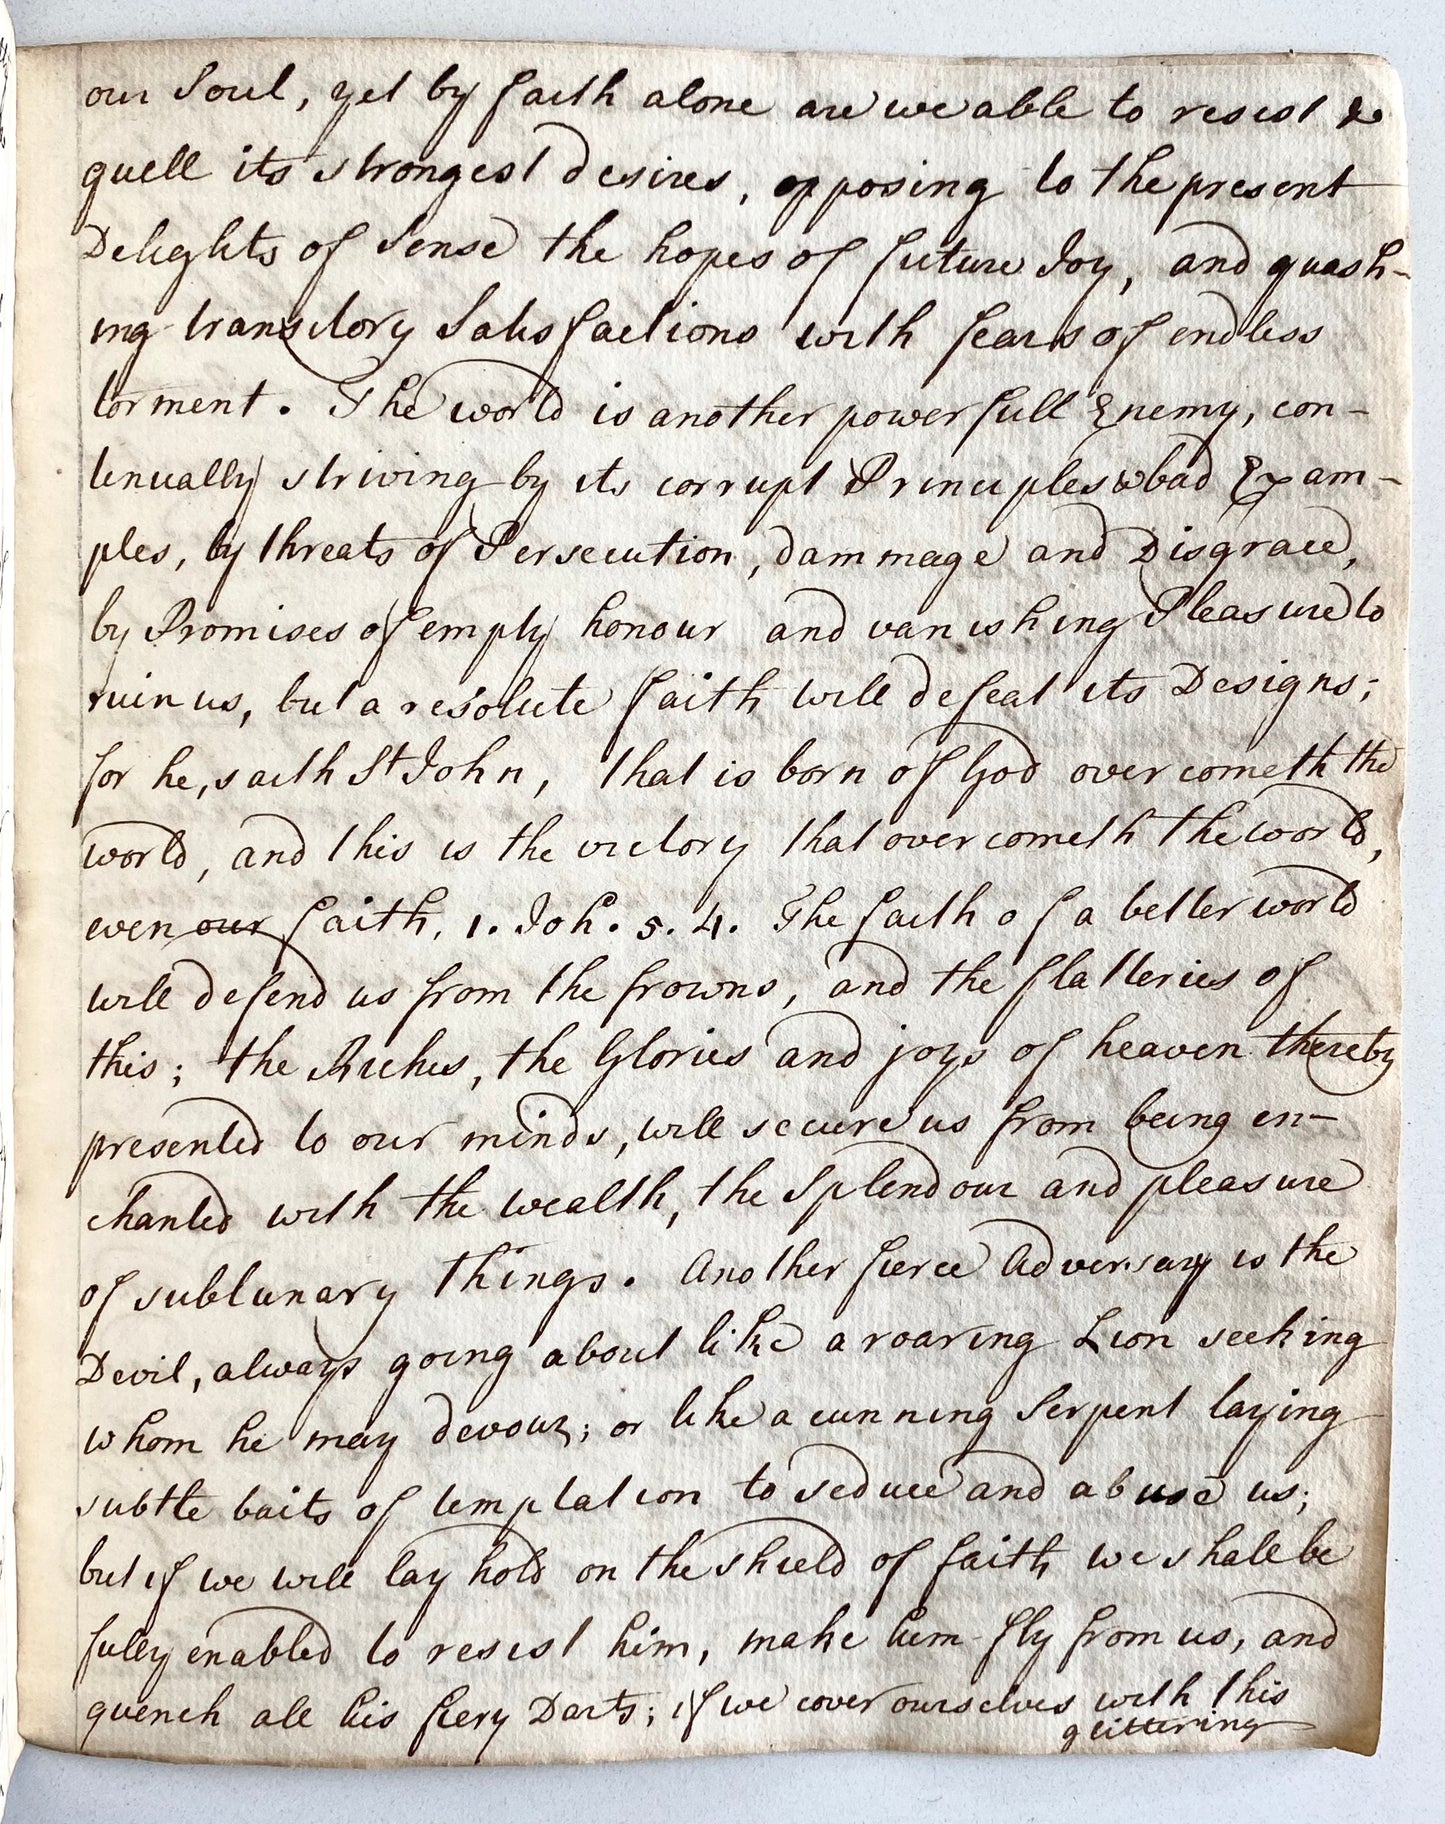 our Soul, yet by faith alone are we able to resist &
quell its strongest desires, opposing to the present
Delights of Sense the hopes of future Joy, and quash-
ing transitory Satisfactions with fears of endless
torment. The world is another powerfull Enemy, con-
tinually striving by its corrupt Principles & bad Exam-
ples, by threats of Persecution, dammage and Disgrace,
by Promises of empty honour and vanishing Pleasure to
ruin us, but a resolute faith will defeat its Designs;
for he, saith St John, that is born of God overcometh the
world, and this is the victory that overcometh the world,
even our faith, 1. Joh. 5. 4. The faith of a better world
will defend us from the frowns, and the flatteries of
this; the Riches, the Glories and joys of heaven thereby
presented to our minds, will secure us from being en-
chanted with the wealth, the Splendour and pleasure
of sublunary things. Another fierce Adversary is the
Devil, always going about like a roaring Lion seeking
whom he may devour; or like a cunning Serpent laying
subtle baits of temptation to seduce and abuse us;
but if we will lay hold on the shield of faith we shall be
fully enabled to resist him, make him fly from us, and
quench all his fiery Darts; if we cover ourselves with this
glittering